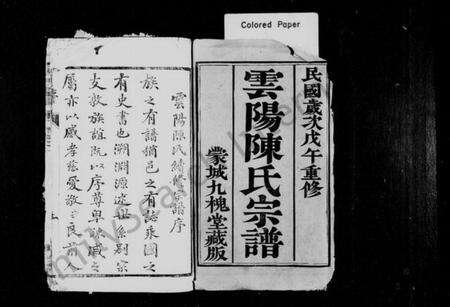 Colored Paper
民國歲次戊午重修
雲陽陳氏宗譜
蒙城九槐堂藏版
雲陽陳氏續修宗譜序
族之有譜猶邑之有誌乘國之
有史書也溯淵源述世系別宗
支敦族誼既以序尊卑
屬亦以感孝慈愛敬之良